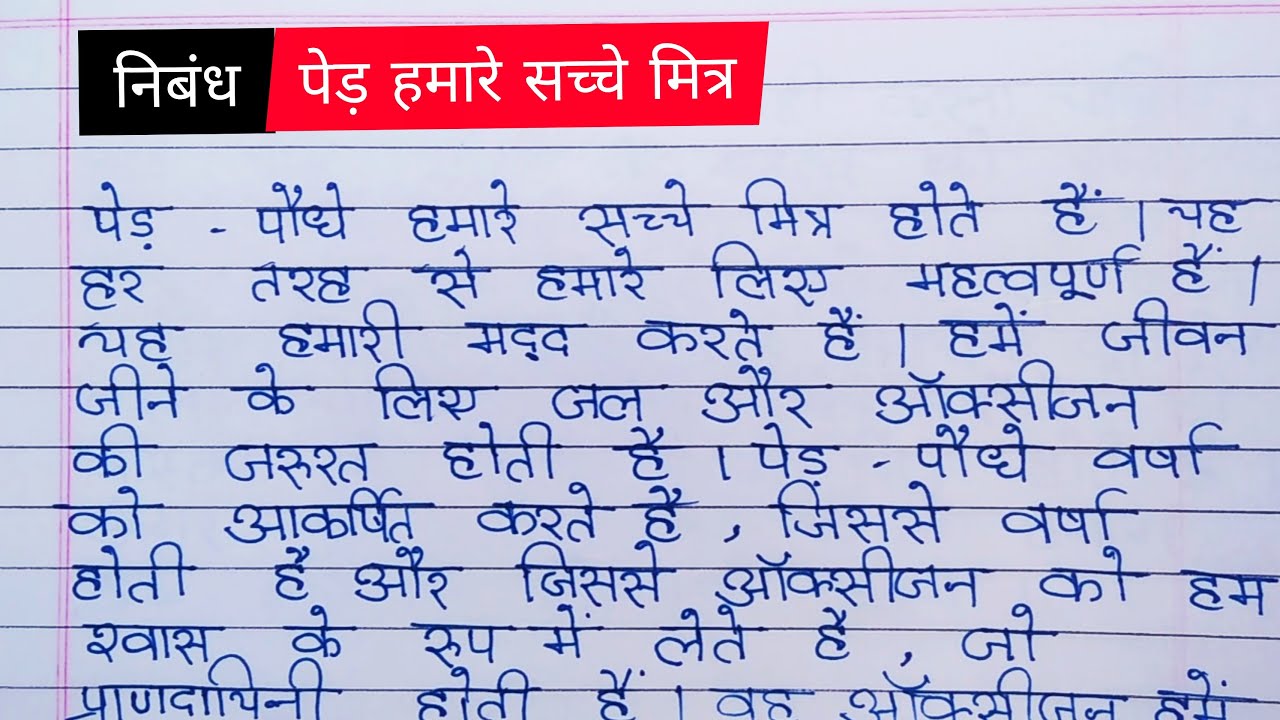 निबंध पेड़ हमारे सच्चे मित्र
पेड़ - पौधे हमारे सच्चे मित्र होते हैं । यह
हर तरह से हमारे लिए महत्वपूर्ण हैं ।
यह हमारी मद्द करते हैं । हमें जीवन
जीने के लिए जल और ऑक्सीजन
की जरुरत होती है । पेड़ - पौधे वर्षा
को आकर्षित करते हैं , जिससे वर्षा
होती है और जिससे ऑक्सीजन को हम
श्वास के रुप में लेते है , जो
प्राणदायिनी होती हैं । वह ऑक्सीजन हमें